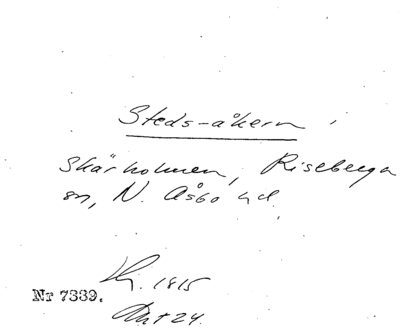 Steds-åkern
Skärholmen, Riseberga
sn, N. Åsbo hd.
1815
Nr 7339.
Akt 24.